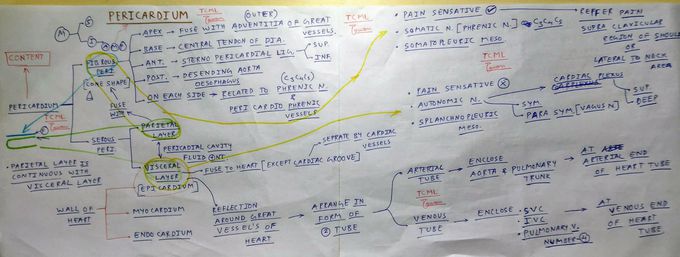 PERICARDIUM
(OUTER)
TCML
M
S
I
A M P
APEX → FUSE WITH ADVENTITIA OF GREAT VESSELS.
BASE → CENTRAL TENDON OF DIA.
ANT. → STERNO PERICARDIAL LIG.
SUP.
INF.
POST. → DESENDING AORTA
OESOPHAGUS
ON EACH SIDE → RELATED TO PHRENIC N.
(C3C4C5)
PERI CARDIO PHRENIC VESSELS
CONTENT
FIBROUS PERI
[CONE SHAPE]
PERICARDIUM
TCML
FUSE WITH
SEROUS PERI.
PARIETAL LAYER
PERICADIAL CAVITY
FLUID
VISCERAL LAYER
[EPICARDIUM]
FUSE TO HEART [EXCEPT CARDIAC GROOVE]
SEPRATE BY CARDIAC VESSELS
• PARIETAL LAYER IS CONTINUOUS WITH VISCERAL LAYER
WALL OF HEART
MYOCARDIUM
ENDOCARDIUM
REFLECTION AROUND GREAT VESSEL'S OF HEART
ARRANGE IN FORM OF 2 TUBE
TCML
• PAIN SENSATIVE
• SOMATIC N. [PHRENIC N.] C3C4C5
• SOMATOPLEURIC MESO.
REFFER PAIN
SUPRA CLAVICULAR
REGION OF
LATERAL TO NECK AREA
TCML
• PAIN SENSATIVE X
• AUTONOMIC N.
• SPLANCHNOPLEURIC MESO.
CARDIAC PLEXUS
SUP
DEEP
SYM
PARA SYM. [VAGUS N]
ARTERIAL TUBE
ENCLOSE AORTA & PULMONARY TRUNK
AT ARTERIAL END OF HEART TUBE
TCML
VENOUS TUBE
ENCLOSE • SVC
• IVC
• PULMONARY V.
NUMBER-4
AT VENOUS END OF HEART TUBE